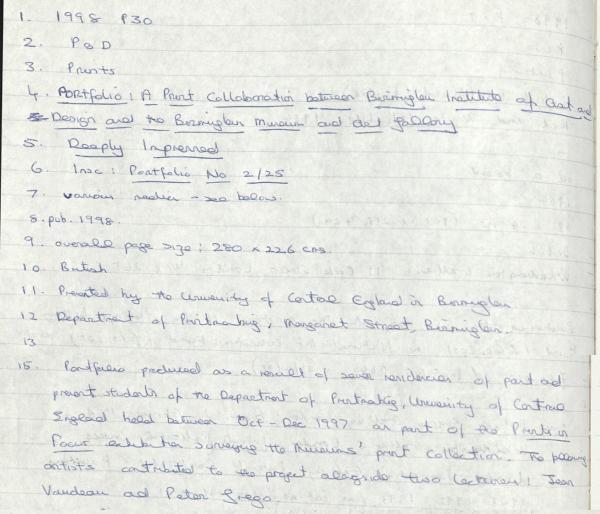 1. 1998 P30
2. P&D
3. Prints
4. Portfolio: A Print Collaboration between Birmingham Institute of Art and
Design and the Birmingham Museum and Art Gallery
5. Deeply Impressed
6. Insc: Portfolio No 2/25
7. various media - see below.
8. pub. 1998.
9. overall page size: 280 x 226 cms.
10. British
11. Presented by the University of Central England in Birmingham
12 Department of Printmaking, Margaret Street, Birmingham.
13
15. Portfolio produced as a result of seven residencies of past and
present students of the Department of Printmaking, University of Central
England held between Oct - Dec 1997 as part of the Prints in
Focus exhibition surveying the Museums' print collection. The following
artists contributed to the project alongside two Lecturers: Jean
Vaudeau and Peter Grego.